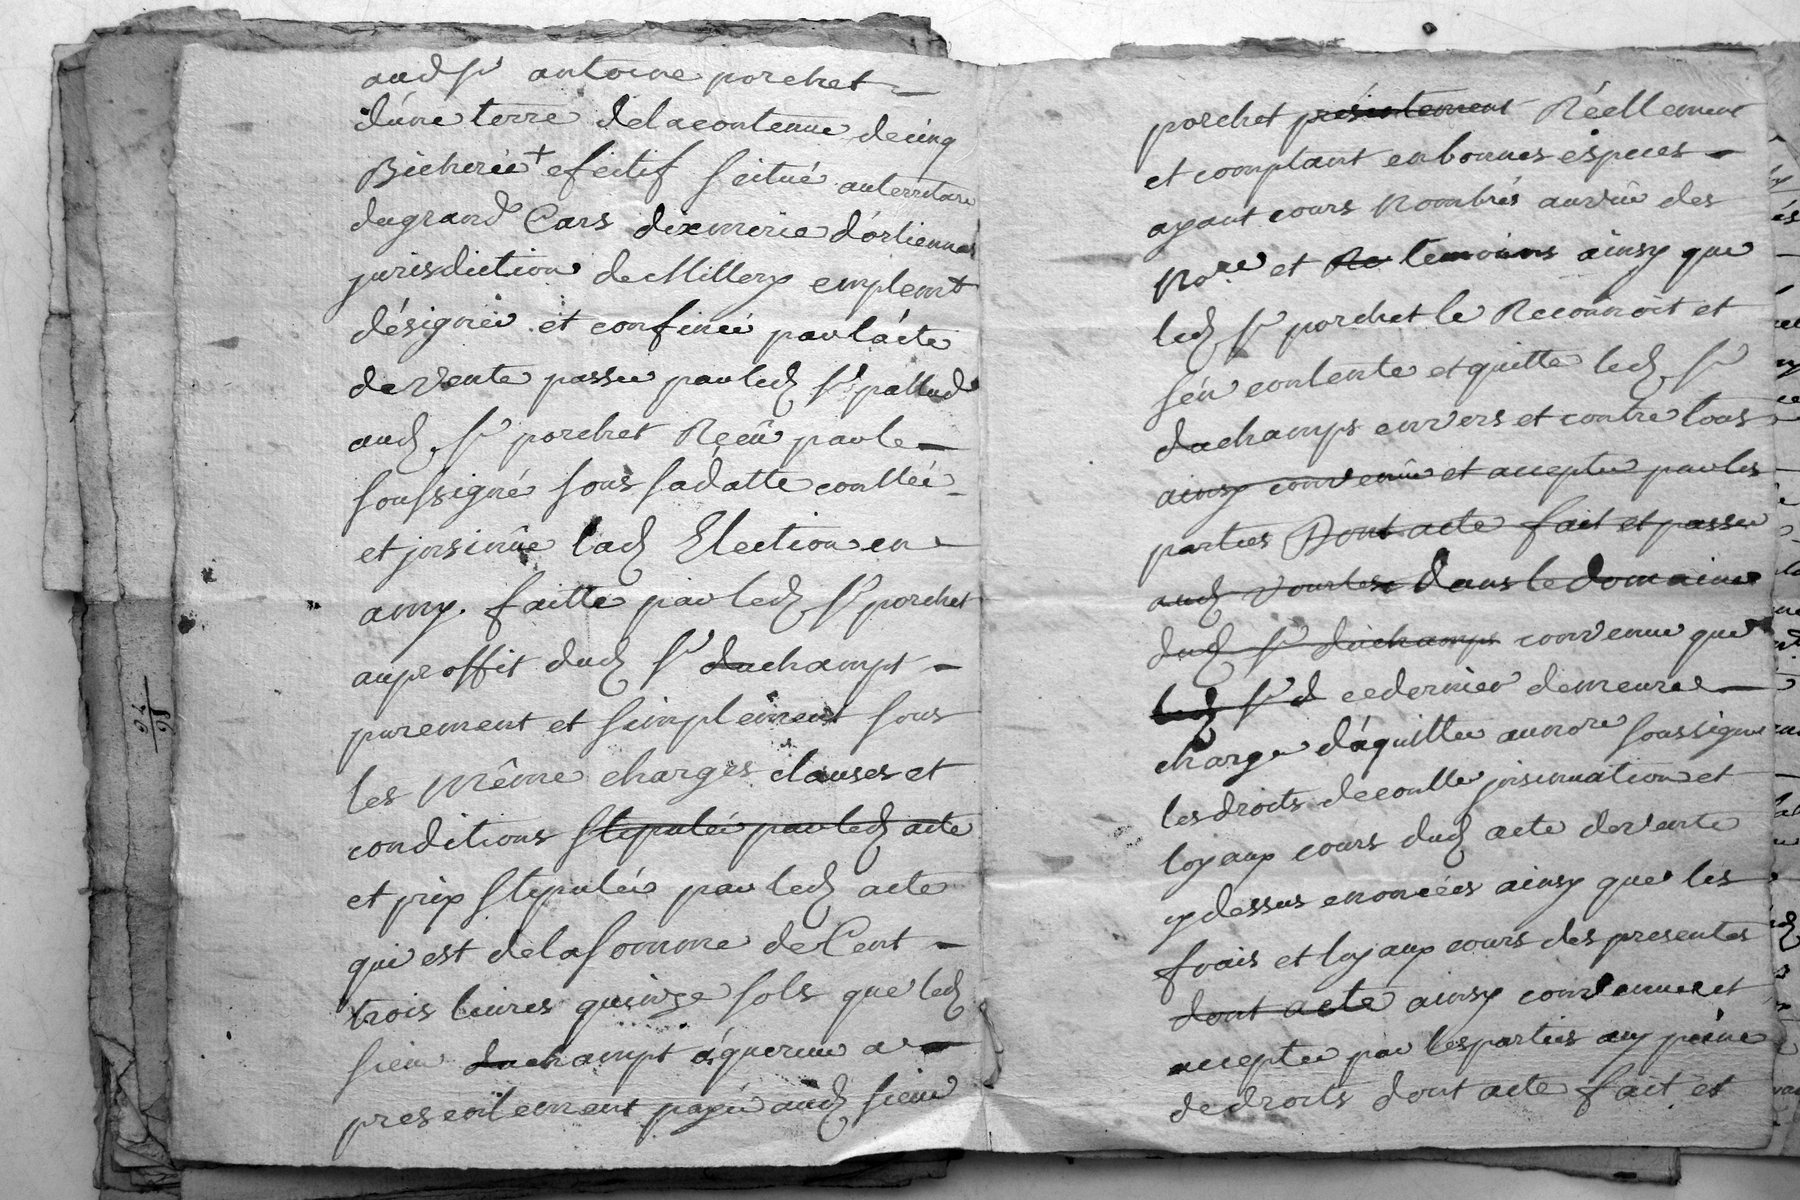 aud sr antoine porchet
d'une terre de la contenue de cinq
Bicherée + efectif scitué au territoire
du grand Cars dixmerie d'orliennas
jurisdiction de Millery emplemt
désignée et confinée par l'acte
de vente passée par led sr pallud
aud sr porchet Reçû par le
soussigné sous sa datte conllée
et jnsinûe lad Election en
amy. faitte par led sr porchet
au proffit dud sr duchampt
purement et simplement sous
les même charges clauses et
conditions stipulée par led acte
et prix stipulée par led acte
qui est de la somme de Cent
trois livres quinze sols que led
sieur duchampt aquereur a
presentement payé aud sieur
94
98
porchet présentement Réellement
et comptant en bonnes éspeces
ayant cours Nombrés au vüe des
No.re et temoins ainsy que
led sr porchet le Reconnoit et
s'en contente et quitte led sr
duchamps envers et contre tous
ainsy convenûe et acceptée par les
parties Dont acte fait et passée
aud Vourles dans le domaine
dud sr duchamps convenue que
led sr d ce dernier demeure
charge d'aquitter au nore soussigne
les droits de conlle jnsinuation et
loyaux cours dud acte de vente
cy dessus enoncées ainsy que les
frais et loyaux cours des presentes
dont acte ainsy convenue et
acceptée par les parties aux peine
de droits dont acte fait et